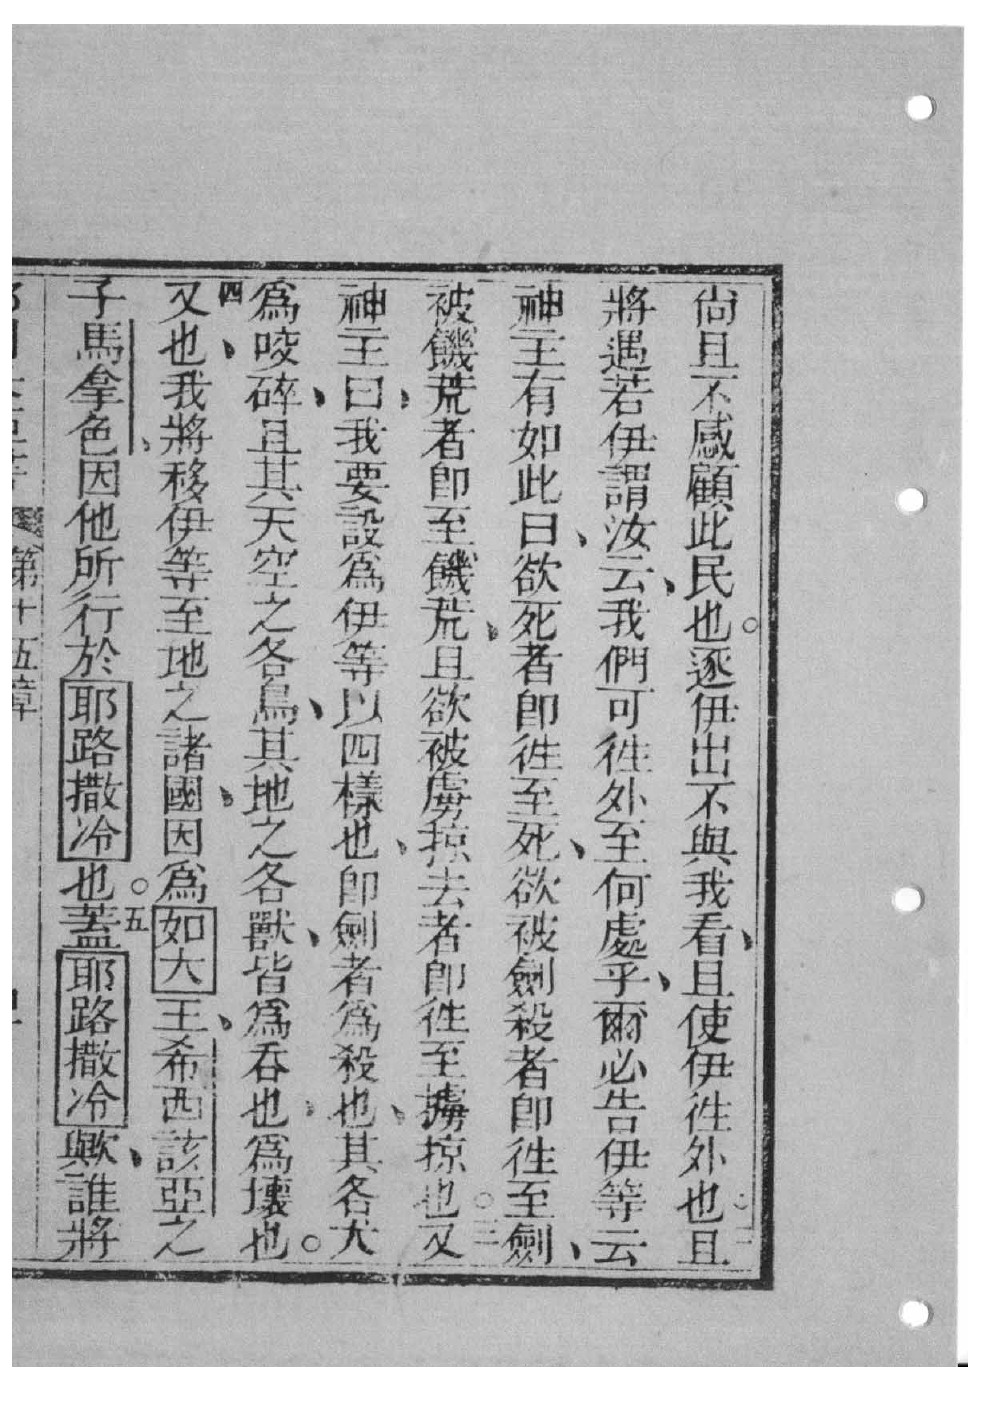 尙且不感顧此民也。逐伊出不與我看、且使伊徃外也。二且
將遇若伊謂汝云、我們可徃外至何處乎、爾必告伊等云
神主有如此曰、欲死者卽徃至死、欲被劍殺者卽徃至劍、
被饑荒者卽至饑荒、且欲被虜掠去者卽徃至擄掠也。三又
神主曰、我要設爲伊等以四樣也、卽劍者爲殺也、其各犬
爲咬碎、且其天空之各鳥、其地之各獸、皆爲吞也、爲壞也。
四又也、我將移伊等至地之諸國、因爲如大王、希西該亞之
子馬拿色、因他所行於耶路撒冷也。五蓋耶路撒冷歟、誰將
第十五章